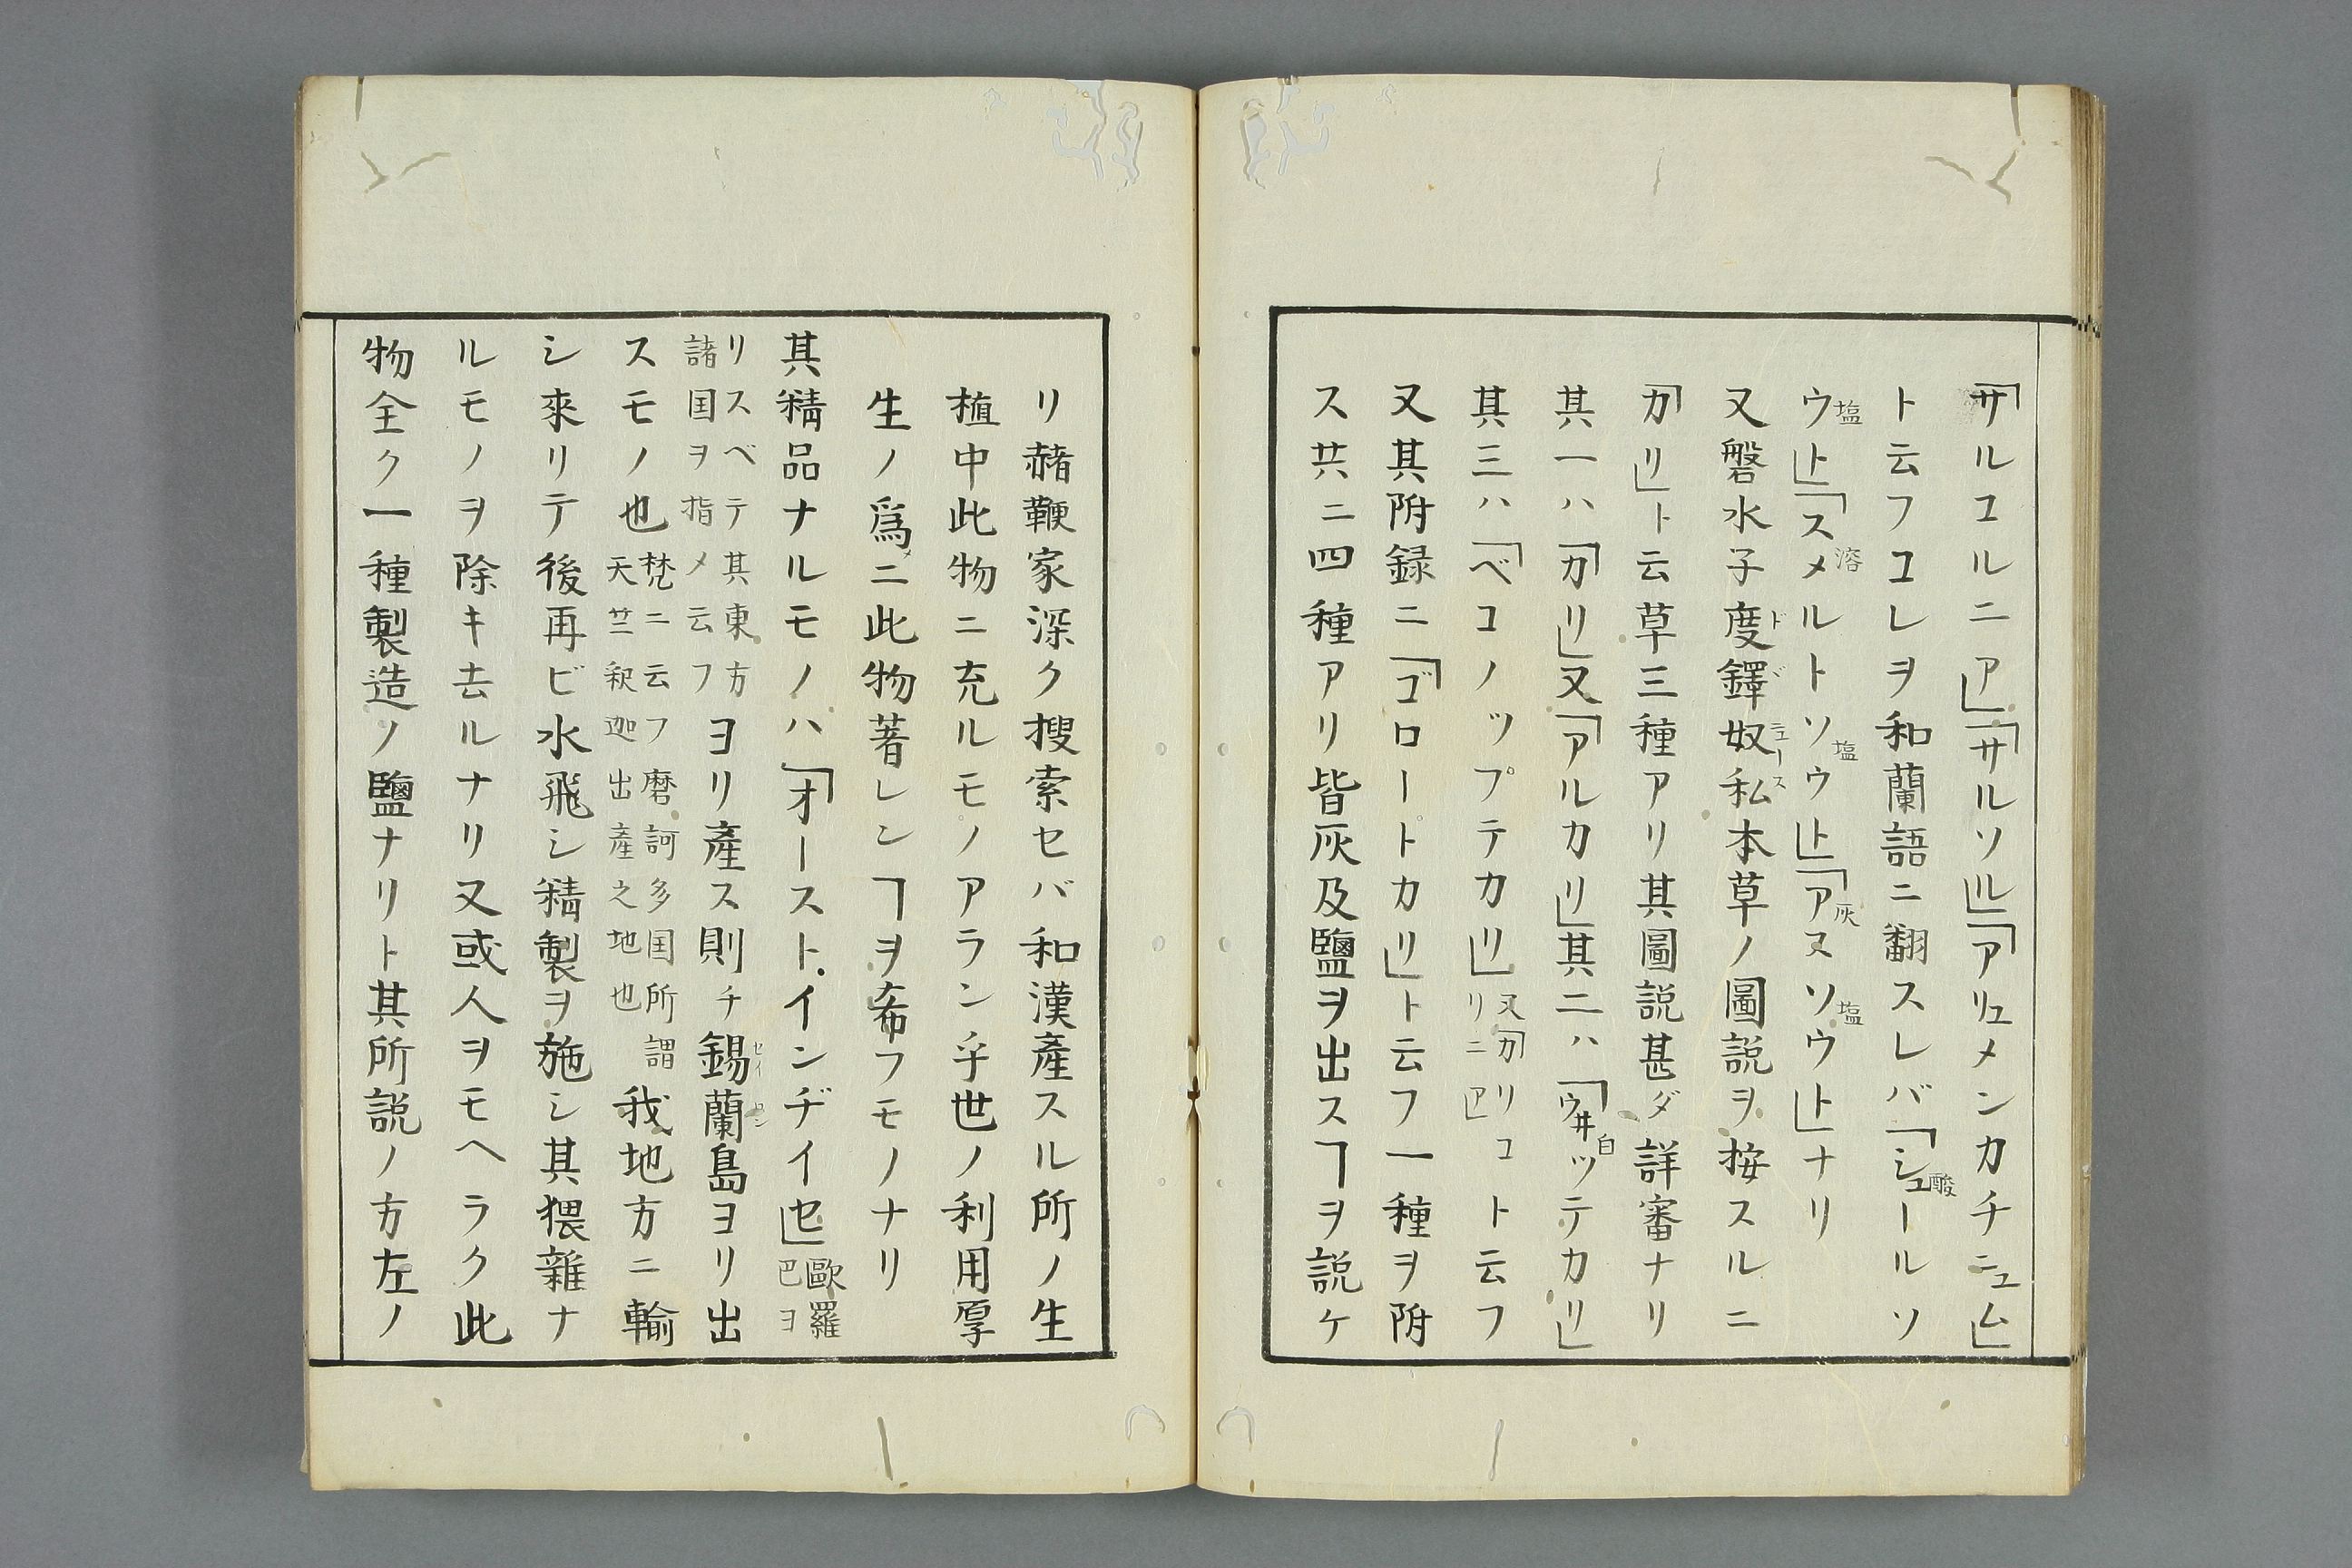 「サルユルニア」「サルソル」「アリュメンカチニュム」
ト云フコレヲ和蘭語ニ翻スレバ「シュールソ
酸
ウト」「スメルトソウト」「アスソウト」ナリ
塩 溶 塩 灰 塩
又磐水子度鐸奴私本草ノ圖説ヲ按スルニ
ドド ニュース
「カリ」ト云草三種アリ其圖説甚ダ詳審ナリ
其一ハ「カリ」又「アルカリ」其二ハ「ウ井ッテカリ」
白
其三ハ「ベコノップテカリ」又「カリコ
リニア」ト云フ
又其附録ニ「ゴロートカリ」ト云フ一種ヲ附
ス共ニ四種アリ皆灰及鹽ヲ出スヿヲ説ケ
リ赭鞭家深ク搜索セバ和漢產スル所ノ生
植中此物ニ充ルモノアラン乎世ノ利用厚
生ノ爲メニ此物著レンヿヲ希フモノナリ
其精品ナルモノハ「オースト、インヂイセ」歐羅
巴ヨ
リスベテ其東方
諸国ヲ指メ云フ
ヨリ產ス則チ錫蘭島ヨリ出
セイロン
スモノ也梵ニ云フ磨訶多国所謂
天竺釈迦出産之地也
我地方ニ輸
シ來リテ後再ビ水飛シ精製ヲ施シ其猥雜ナ
ルモノヲ除キ去ルナリ又或人ヲモヘラク此
物全ク一種製造ノ鹽ナリト其所説ノ方左ノ